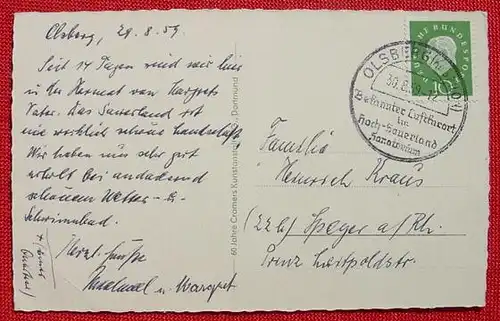 Olsberg, 29.8.59
Seit 14 Tagen sind wir hier
in der Heimat von Margrets
Vater. Das Sauerland ist
eine wirklich schöne Landschaft.
Wir haben uns sehr gut
erholt bei andauernd
schönem Wetter
Schwimmbad.
Herzl. Grüße
u. Margret
60 Jahre Cramers Kunstanstalt, Dortmund
HE BUNDESPOS
10
OLSBERG
30.8.59-12
Bekannter Luftkurort
im
Hoch-Sauerland
Familie
Heinrich Kraus
(22b) Speyer a/Rh.
Prinz Luitpoldstr.